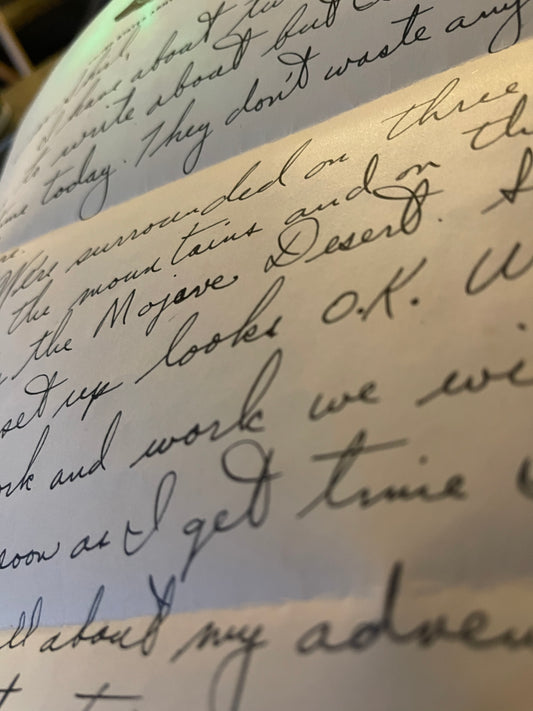 that,
have about
to write about but
time today. They don't waste any
We're surrounded on three
the mountains and on
the Mojave Desert.
set up looks O.K.
and work we
soon as I get time
about my